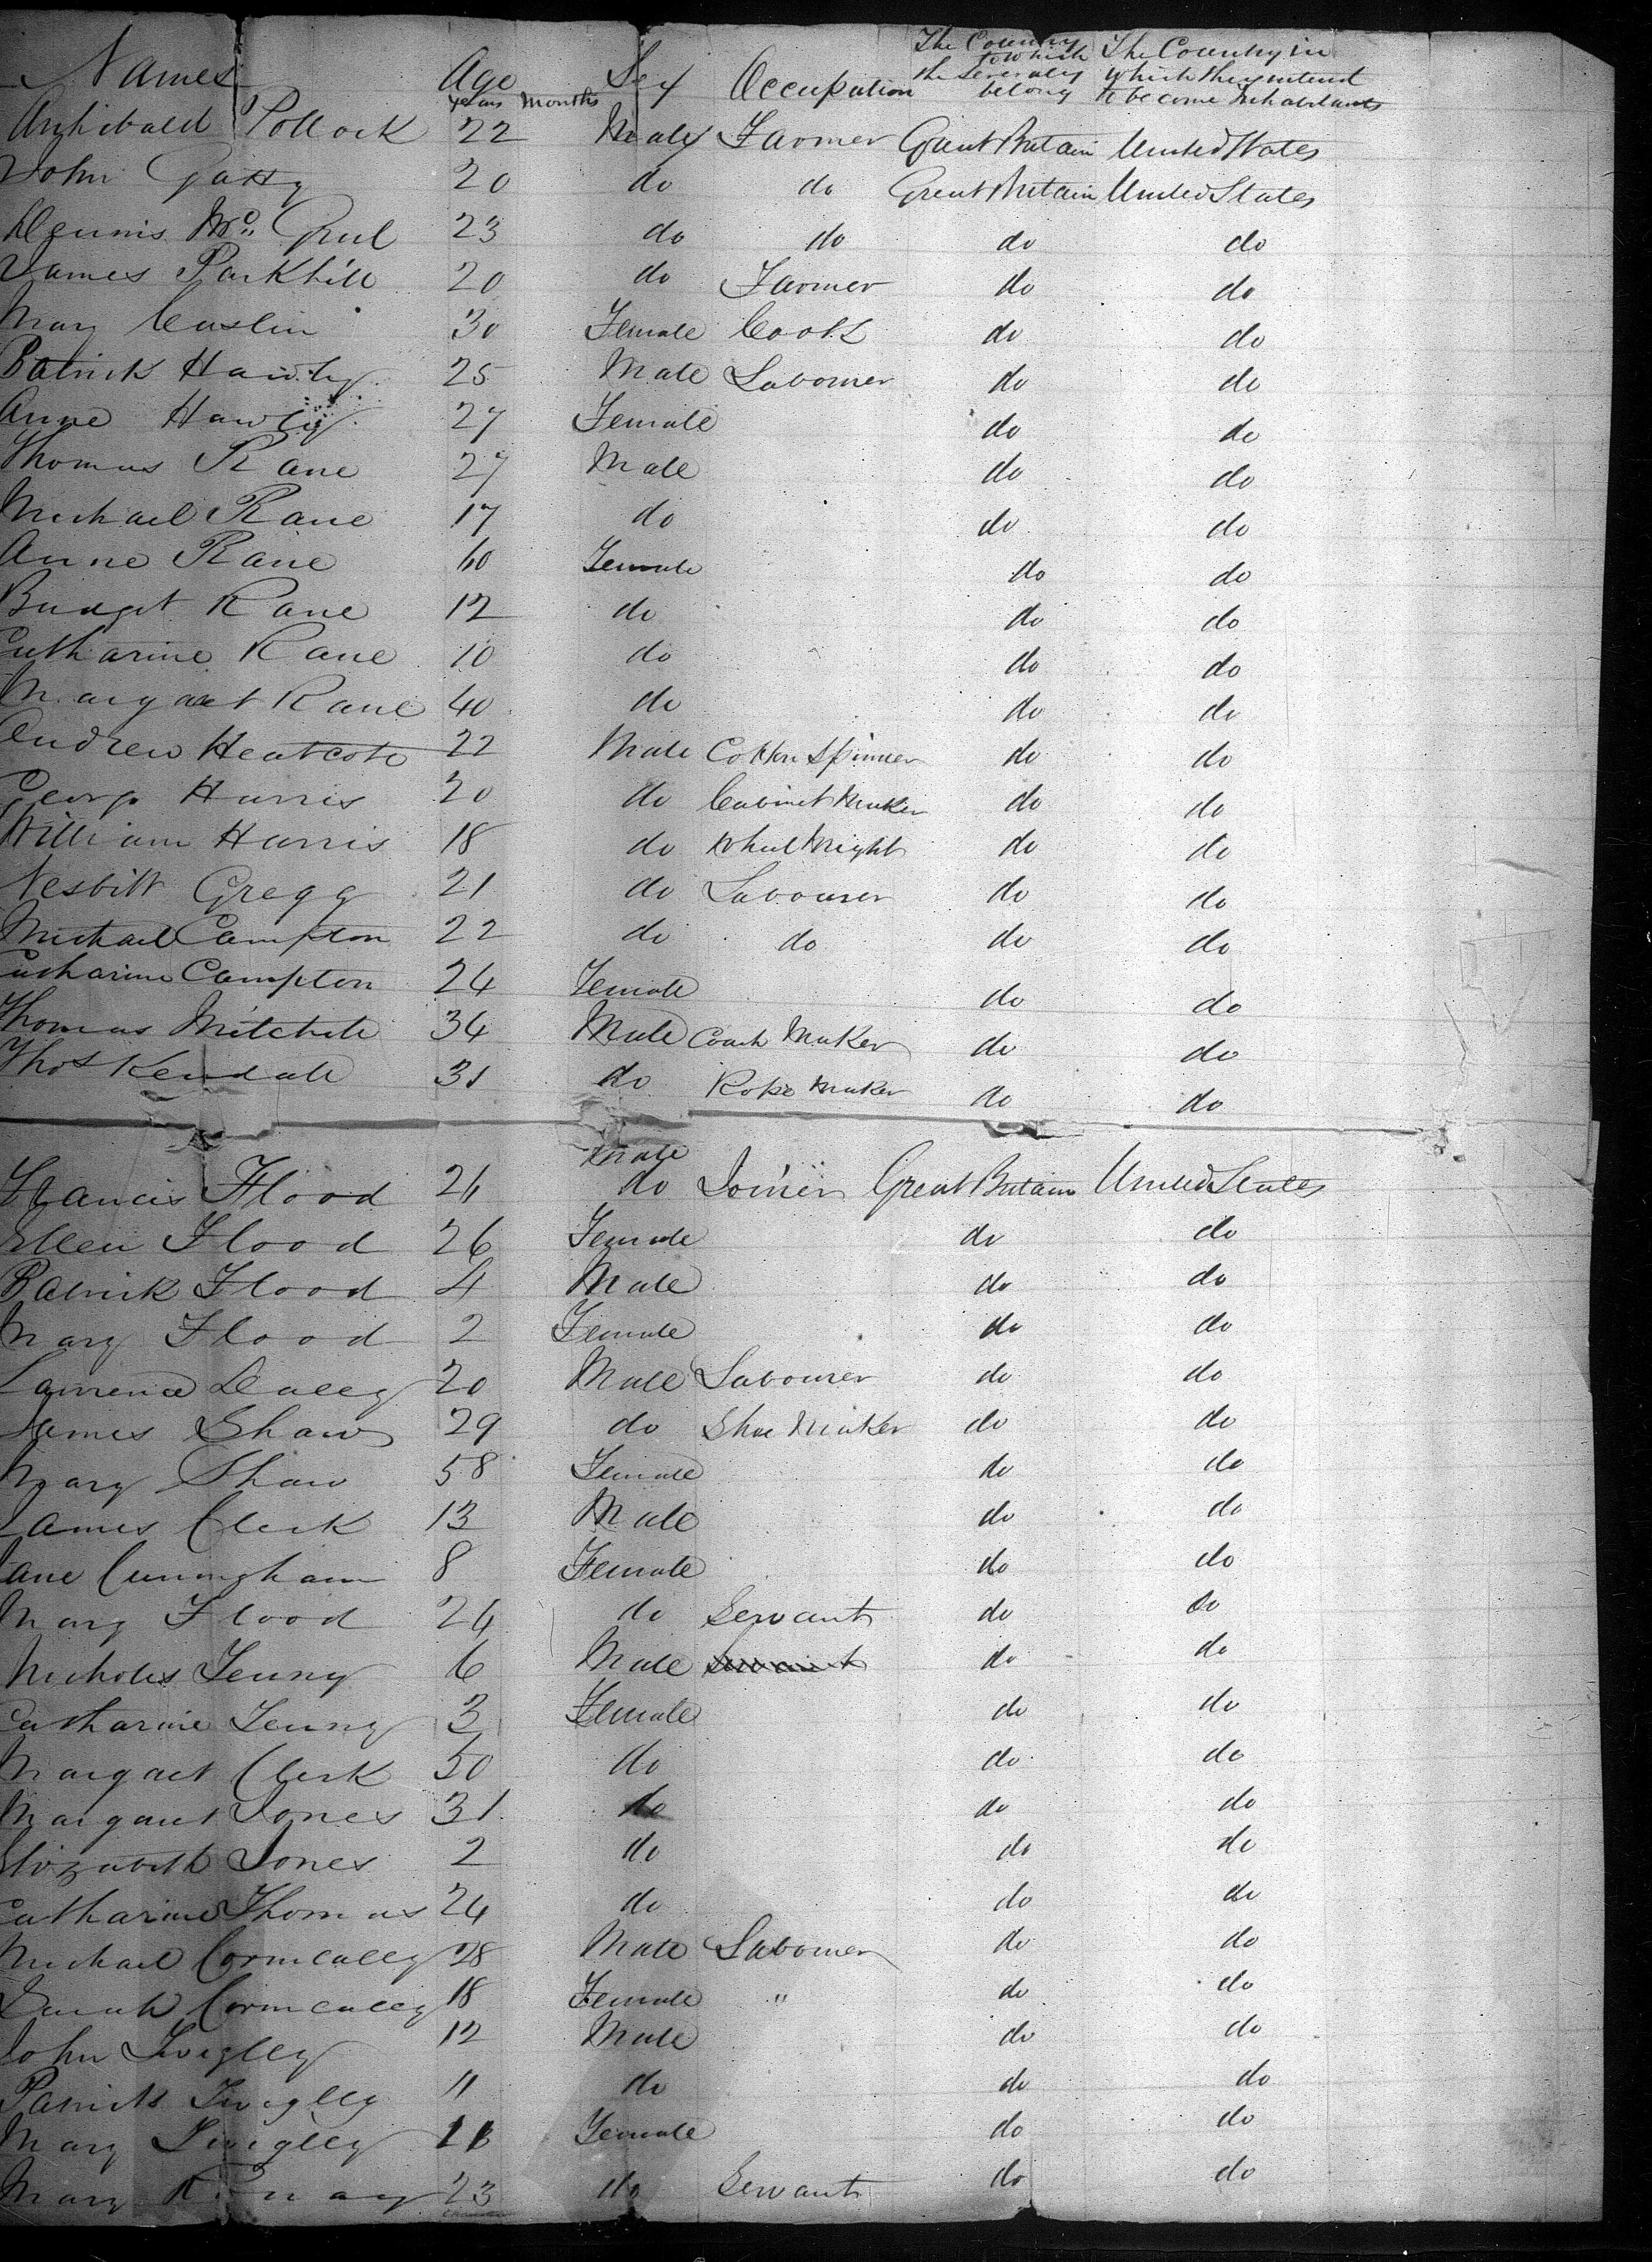 Names Age Sex Occupation The Country to which the Severally belong The Country in which they intend to become Inhabitants
years Months
Archibald Pollock 22 Male Farmer Great Britain United States
John 20 do do Great Britain United States
Dennis Mc 23 do do do do
James Parkhill 20 do Farmer do do
Mary Caslin 30 Female Cook do do
Patrick Hawly 25 Male Labourer do do
Anne Hawly 27 Female do do
Thomas Rane 27 Male do do
Michael Rane 17 do do do
Anne Rane 60 Female do do
Bridget Rane 12 do do do
Catharine Rane 10 do do do
Margaret Rane 40 do do do
Andrew Heatcote 22 Male Cotton Spinner do do
George Harris 20 do Cabinet Maker do do
William Harris 18 do Wheel Wright do do
Nesbitt Gregg 21 do Labourer do do
Michael Campton 22 do do do do
Catharine Campton 24 Female do do
Thomas Mitchell 34 Male Coach Maker do do
Thos Kendall 31 do Rope Maker do do
Male
Francis Flood 26 do Joiner Great Britain United States
Ellen Flood 26 Female do do
Patrick Flood 4 Male do do
Mary Flood 2 Female do do
Lawrence Dalley 20 Male Labourer do do
James Shaw 29 do Shoe Maker do do
Mary Shaw 58 Female do do
James Clerk 13 Male do do
Jane Cuningham 8 Female do do
Mary Flood 24 do Servant do do
Nicholes Fenny 6 Male Servant do do
Catharine Fenny 3 Female do do
Margaret Clerk 50 do do do
Margaret Jones 31 do do do
Elizabeth Jones 2 do do do
Catharine Thomas 24 do do do
Michael Cormcalley 28 Male Labourer do do
Sarah Cormcalley 18 Female " do do
John Twiglley 12 Male do do
Patrick Twiglley 11 do do do
Mary Twiglley Female do do
Mary 23 do Servant do do